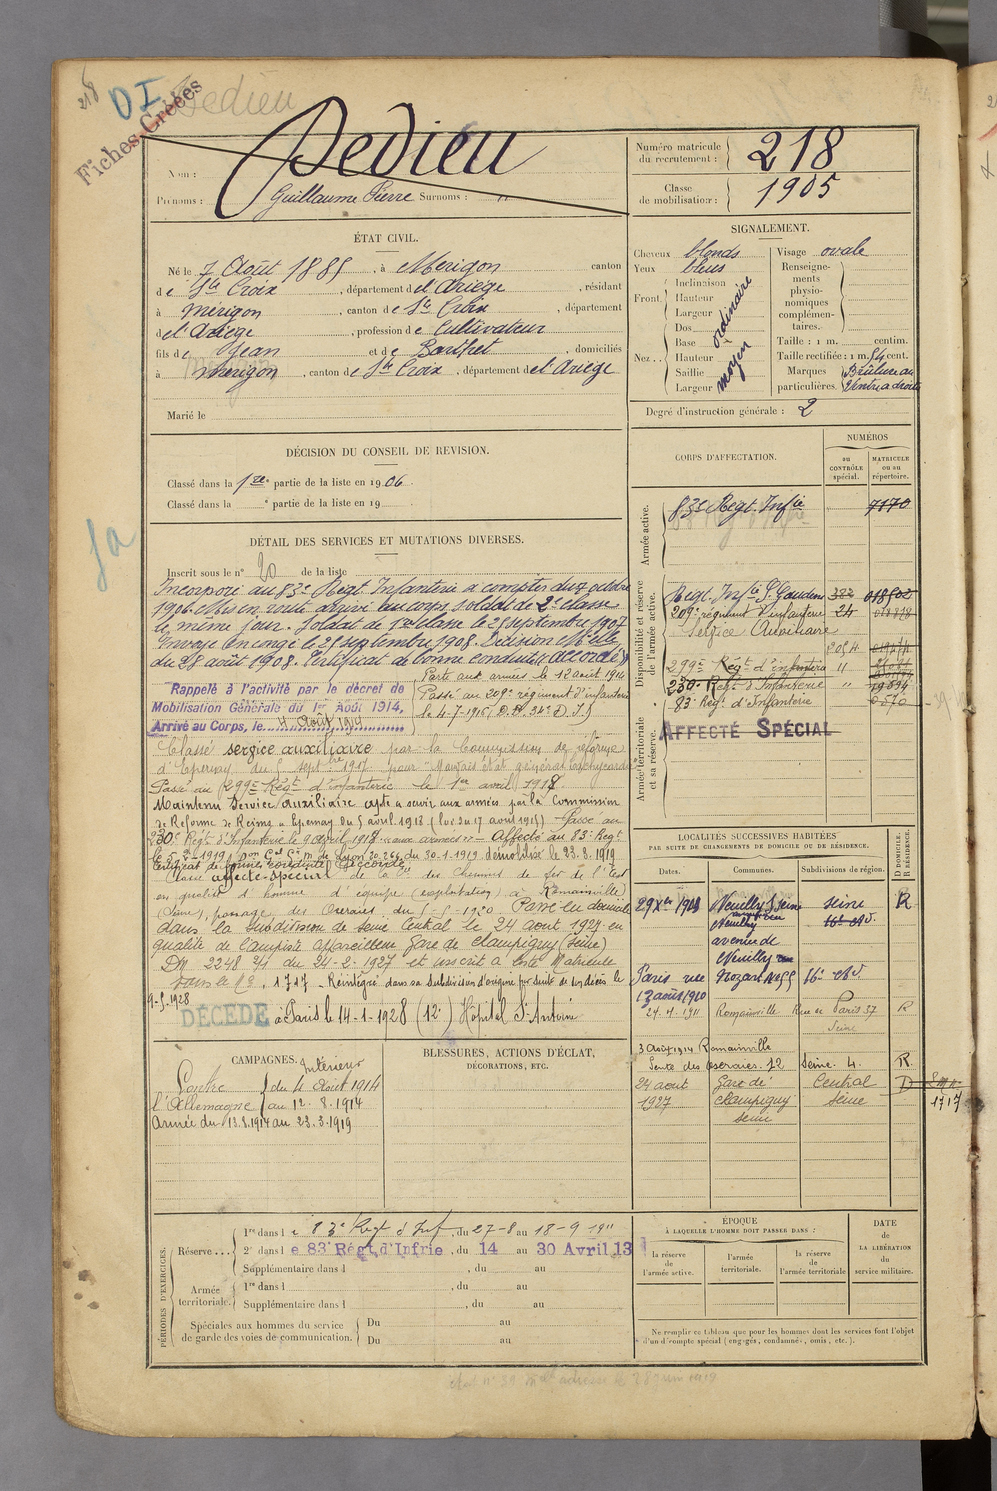 218
DI
Dedieu
Fiches Créées
Nom : Dedieu
Prénoms : Guillaume Pierre Surnoms : "
Numéro matricule du recrutement : 218
Classe de mobilisation : 1905
ÉTAT CIVIL.
Né le 7 Août 1885, à Mérigon canton
de Ste Croix, département de l'Ariège, résidant
à Mérigon, canton de Ste Croix, département
de l'Ariège, profession de Cultivateur
fils de Jean et de Barthet, domiciliés
à Mérigon, canton de Ste Croix, département de l'Ariège
Marié le
SIGNALEMENT.
Cheveux blonds
Yeux bleus
Front. Inclinaison Hauteur Largeur ordinaire
Nez.. Dos Base Hauteur Saillie Largeur moyen
Visage ovale
Renseignements physionomiques complémentaires.
Taille : 1 m. centim.
Taille rectifiée : 1 m. 54 cent.
Marques particulières. Brûlure au ventre a droite
Degré d'instruction générale : 2
DÉCISION DU CONSEIL DE REVISION.
Classé dans la 1re partie de la liste en 1906.
Classé dans la e partie de la liste en 19
DÉTAIL DES SERVICES ET MUTATIONS DIVERSES.
Inscrit sous le n° 20 de la liste
Incorporé au 83e Régt Infanterie à compter du 7 octobre
1906. Mis en route arrivé au corps soldat de 2e classe
le même jour. Soldat de 1re classe le 25 septembre 1907
Envoyé en congé le 25 septembre 1908. Décision Mlle
du 28 août 1908. Certificat de bonne conduite "Accordé"
Rappelé à l'activité par le décret de
Mobilisation Générale du 1er Août 1914,
Arrivé au Corps, le 4 Août 1914
Parti aux armées le 12 août 1914
Passé au 209e régiment d'infanterie
le 4-7-1915
Classé service auxiliaire par la Commission de réforme
d'Epernay du 5 septbre 1917 pour "Mauvais état général tachycardie
Passé au 299e Régt d'infanterie le 1er avril 1918.
Maintenu Service auxiliaire apte a servir aux armées par la Commission
de Reforme de Reims a Epernay du 5 avril 1918 (loi du 17 août 1915) Passé au
230e Régt d'Infanterie le 9 avril 1918 "aux armées" Affecté au 83e Régt
démobilisé le 23.3.1919
Certificat de bonne conduite "Accordé"
Classé affecté spécial de la Cie des Chemins de fer de l'Est
en qualité d'homme d'équipe (exploitation) à Romainville
(Seine), passage des Oseraies du 5-5-1920 Passé en domicile
dans la subdivision de Seine Central le 24 aout 1927 en
qualité de Gare de Champigny (Seine)
DM 2248 du 24-2-1927 et inscrit à Matricule
sous le N° 1717 - Réintégré dans sa Subdivision d'origine par suite de son décès le
9-5-1928
DÉCÉDÉ à Paris le 14-1-1928 (12e) Hôpital St Antoine
CORPS D'AFFECTATION.
NUMÉROS
au CONTRÔLE spécial.
MATRICULE ou au répertoire.
Armée active.
83e Régt Infie 7170
Disponibilité et réserve de l'armée active.
Régt Infie St Gaudens 322 018502
209e régiment d'infanterie 24
Service Auxiliaire
299e Régt d'infanterie "
230e Régt d'Infanterie "
83e Régt d'Infanterie
Armée territoriale et sa réserve.
AFFECTÉ SPÉCIAL
LOCALITÉS SUCCESSIVES HABITÉES
PAR SUITE DE CHANGEMENTS DE DOMICILE OU DE RÉSIDENCE.
Dates. Communes. Subdivisions de région. D DOMICILE. R RÉSIDENCE.
29 Xbre 1908 Neuilly S Seine Seine R
Neuilly
avenue de
Neuilly
Paris rue Mozart N° 55
13 août 1910
24.4.1911 Romainville Rue de Paris 37 R
Seine
3 Août 1914 Romainville
Sente des Oseraies. 12 Seine. 4. R.
24 aout Gare de Central D
1927 Champigny Seine 1717
Seine
CAMPAGNES.
Intérieur
Contre l'Allemagne du 4 Août 1914
au 12.8.1914
Armée du 13.8.1914 au 23.3.1919
BLESSURES, ACTIONS D'ÉCLAT, DÉCORATIONS, ETC.
PÉRIODES D'EXERCICES.
Réserve... 1re dans le 83e Régt d'Inf, du 27-8 au 18-9 1911
2e dans le 83e Régt d'Infrie, du 14 au 30 Avril 13
Supplémentaire dans l , du au
Armée territoriale. 1re dans l , du au
Supplémentaire dans l , du au
Spéciales aux hommes du service de garde des voies de communication. Du au
Du au
ÉPOQUE
À LAQUELLE L'HOMME DOIT PASSER DANS :
la réserve de l'armée active.
l'armée territoriale.
la réserve de l'armée territoriale
DATE de LA LIBÉRATION du service militaire.
Ne remplir ce tableau que pour les hommes dont les services font l'objet
d'un décompte spécial (engagés, condamnés, omis, etc.).